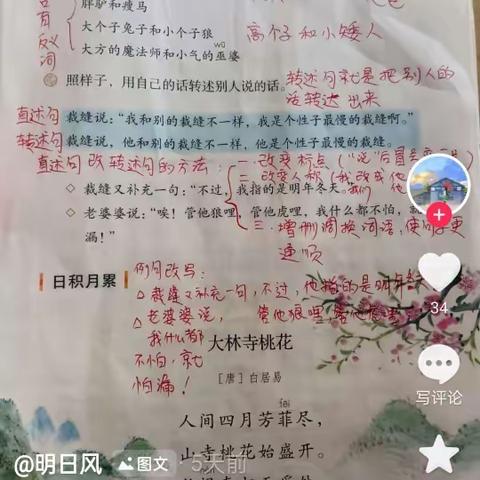 含有反义词
胖驴和瘦马
大个子兔子和小个子狼
高个子和小矮人
wū
大方的魔法师和小气的巫婆
照样子，用自己的话转述别人说的话。
转述句就是把别人的话转达出来
直述句 裁缝说：“我和别的裁缝不一样，我是个性子最慢的裁缝啊。”
转述句 裁缝说，他和别的裁缝不一样，他是个性子最慢的裁缝。
直述句改转述句的方法：
一.改变标点（“说”后冒号变
二.改变人称（我改成他
裁缝又补充一句：“不过，我指的是明年冬天。
我们 他
老婆婆说：“唉！管他狼哩，管他虎哩，我什么都不怕，
漏！”
三.增删调换词语，使句子更通顺
日积月累
例句改写：
△裁缝又补充一句，不过，他指的是明年
△老婆婆说， 管他狼哩，管他虎哩
我什么都
不怕，就
怕漏！
大林寺桃花
［唐］白居易
fēi
人间四月芳菲尽，
山寺桃花始盛开。
34
写评论
@明日风
图文
5天前